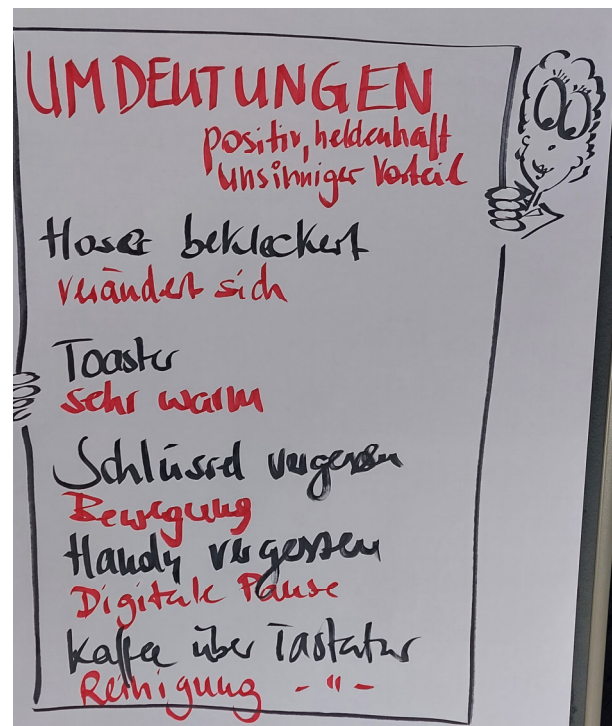 UMDEUTUNGEN
positiv, heldenhaft
unsinniger Vorteil
Hose bekleckert
verändert sich
Toaster
sehr warm
Schlüssel vergessen
Bewegung
Handy vergessen
Digitale Pause
Kaffee über Tastatur
Reinigung - " -